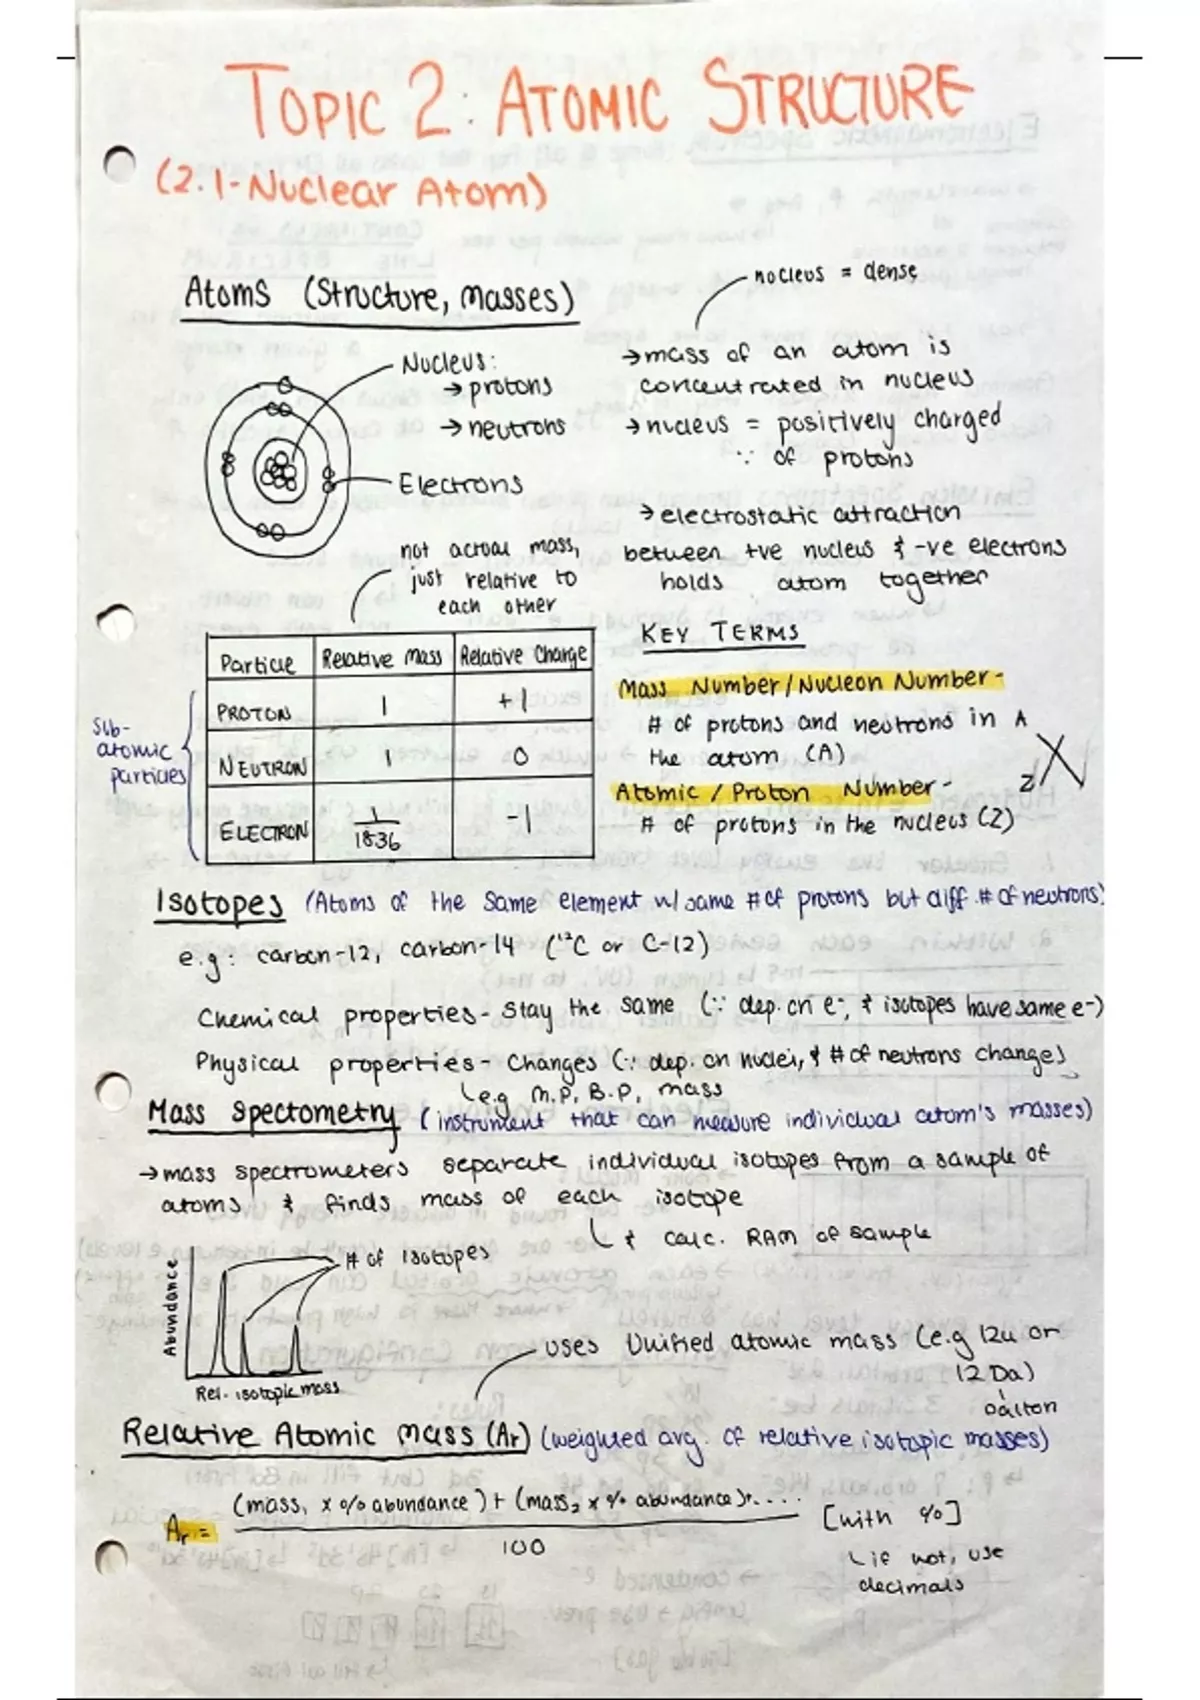 TOPIC 2: ATOMIC STRUCTURE
(2.1-Nuclear Atom)
Atoms (Structure, masses)
nucleus = dense
Nucleus:
→ protons
→ neutrons
Electrons
→ mass of an atom is
concentrated in nucleus
→ nucleus = positively charged
∵ of protons
→ electrostatic attraction
between +ve nucleus & -ve electrons
holds atom together
not actual mass,
just relative to
each other
Particle Relative Mass Relative Charge
PROTON 1 +1
NEUTRON 1 0
ELECTRON 1/1836 -1
Sub-
atomic
particles
KEY TERMS
Mass Number/Nucleon Number-
# of protons and neutrons in
the atom (A)
Atomic / Proton Number-
# of protons in the nucleus (Z)
A
Z X
Isotopes (Atoms of the same element w/ same # of protons but diff. # of neutrons)
e.g: carbon-12, carbon-14 (¹²C or C-12)
Chemical properties- Stay the same (∵ dep. on e-, & isotopes have same e-)
Physical properties- Changes (∵ dep. on nuclei, & # of neutrons change)
e.g M.P, B.P, mass
Mass Spectometry (instrument that can measure individual atom's masses)
→ mass spectrometers separate individual isotopes from a sample of
atoms & finds mass of each isotope
& calc. RAM of sample
Abundance
# of isotopes
Rel. isotopic mass
uses Unified atomic mass (e.g 12u or
12 Da)
Dalton
Relative Atomic Mass (Ar) (weighted avg. of relative isotopic masses)
Ar = (mass₁ x % abundance) + (mass₂ x % abundance)+....
100
[with %]
if not, use
decimals